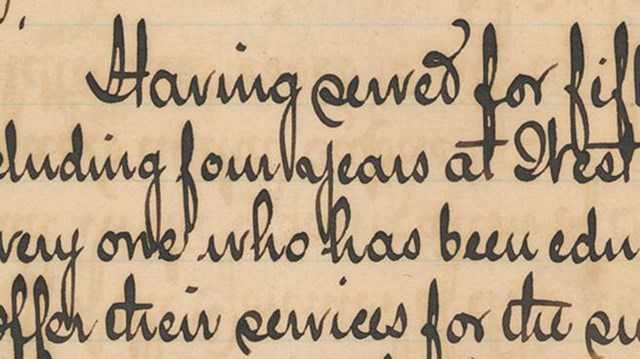 Having served for fif
cluding four years at West
very one who has been edu
offer their services for the su